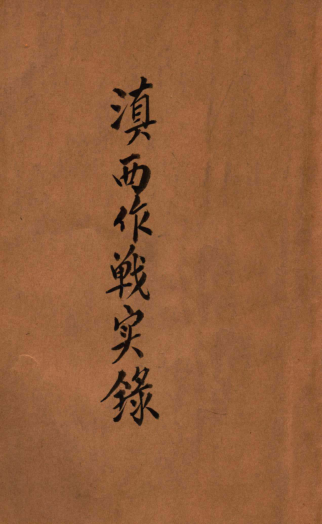 滇西作戦实錄